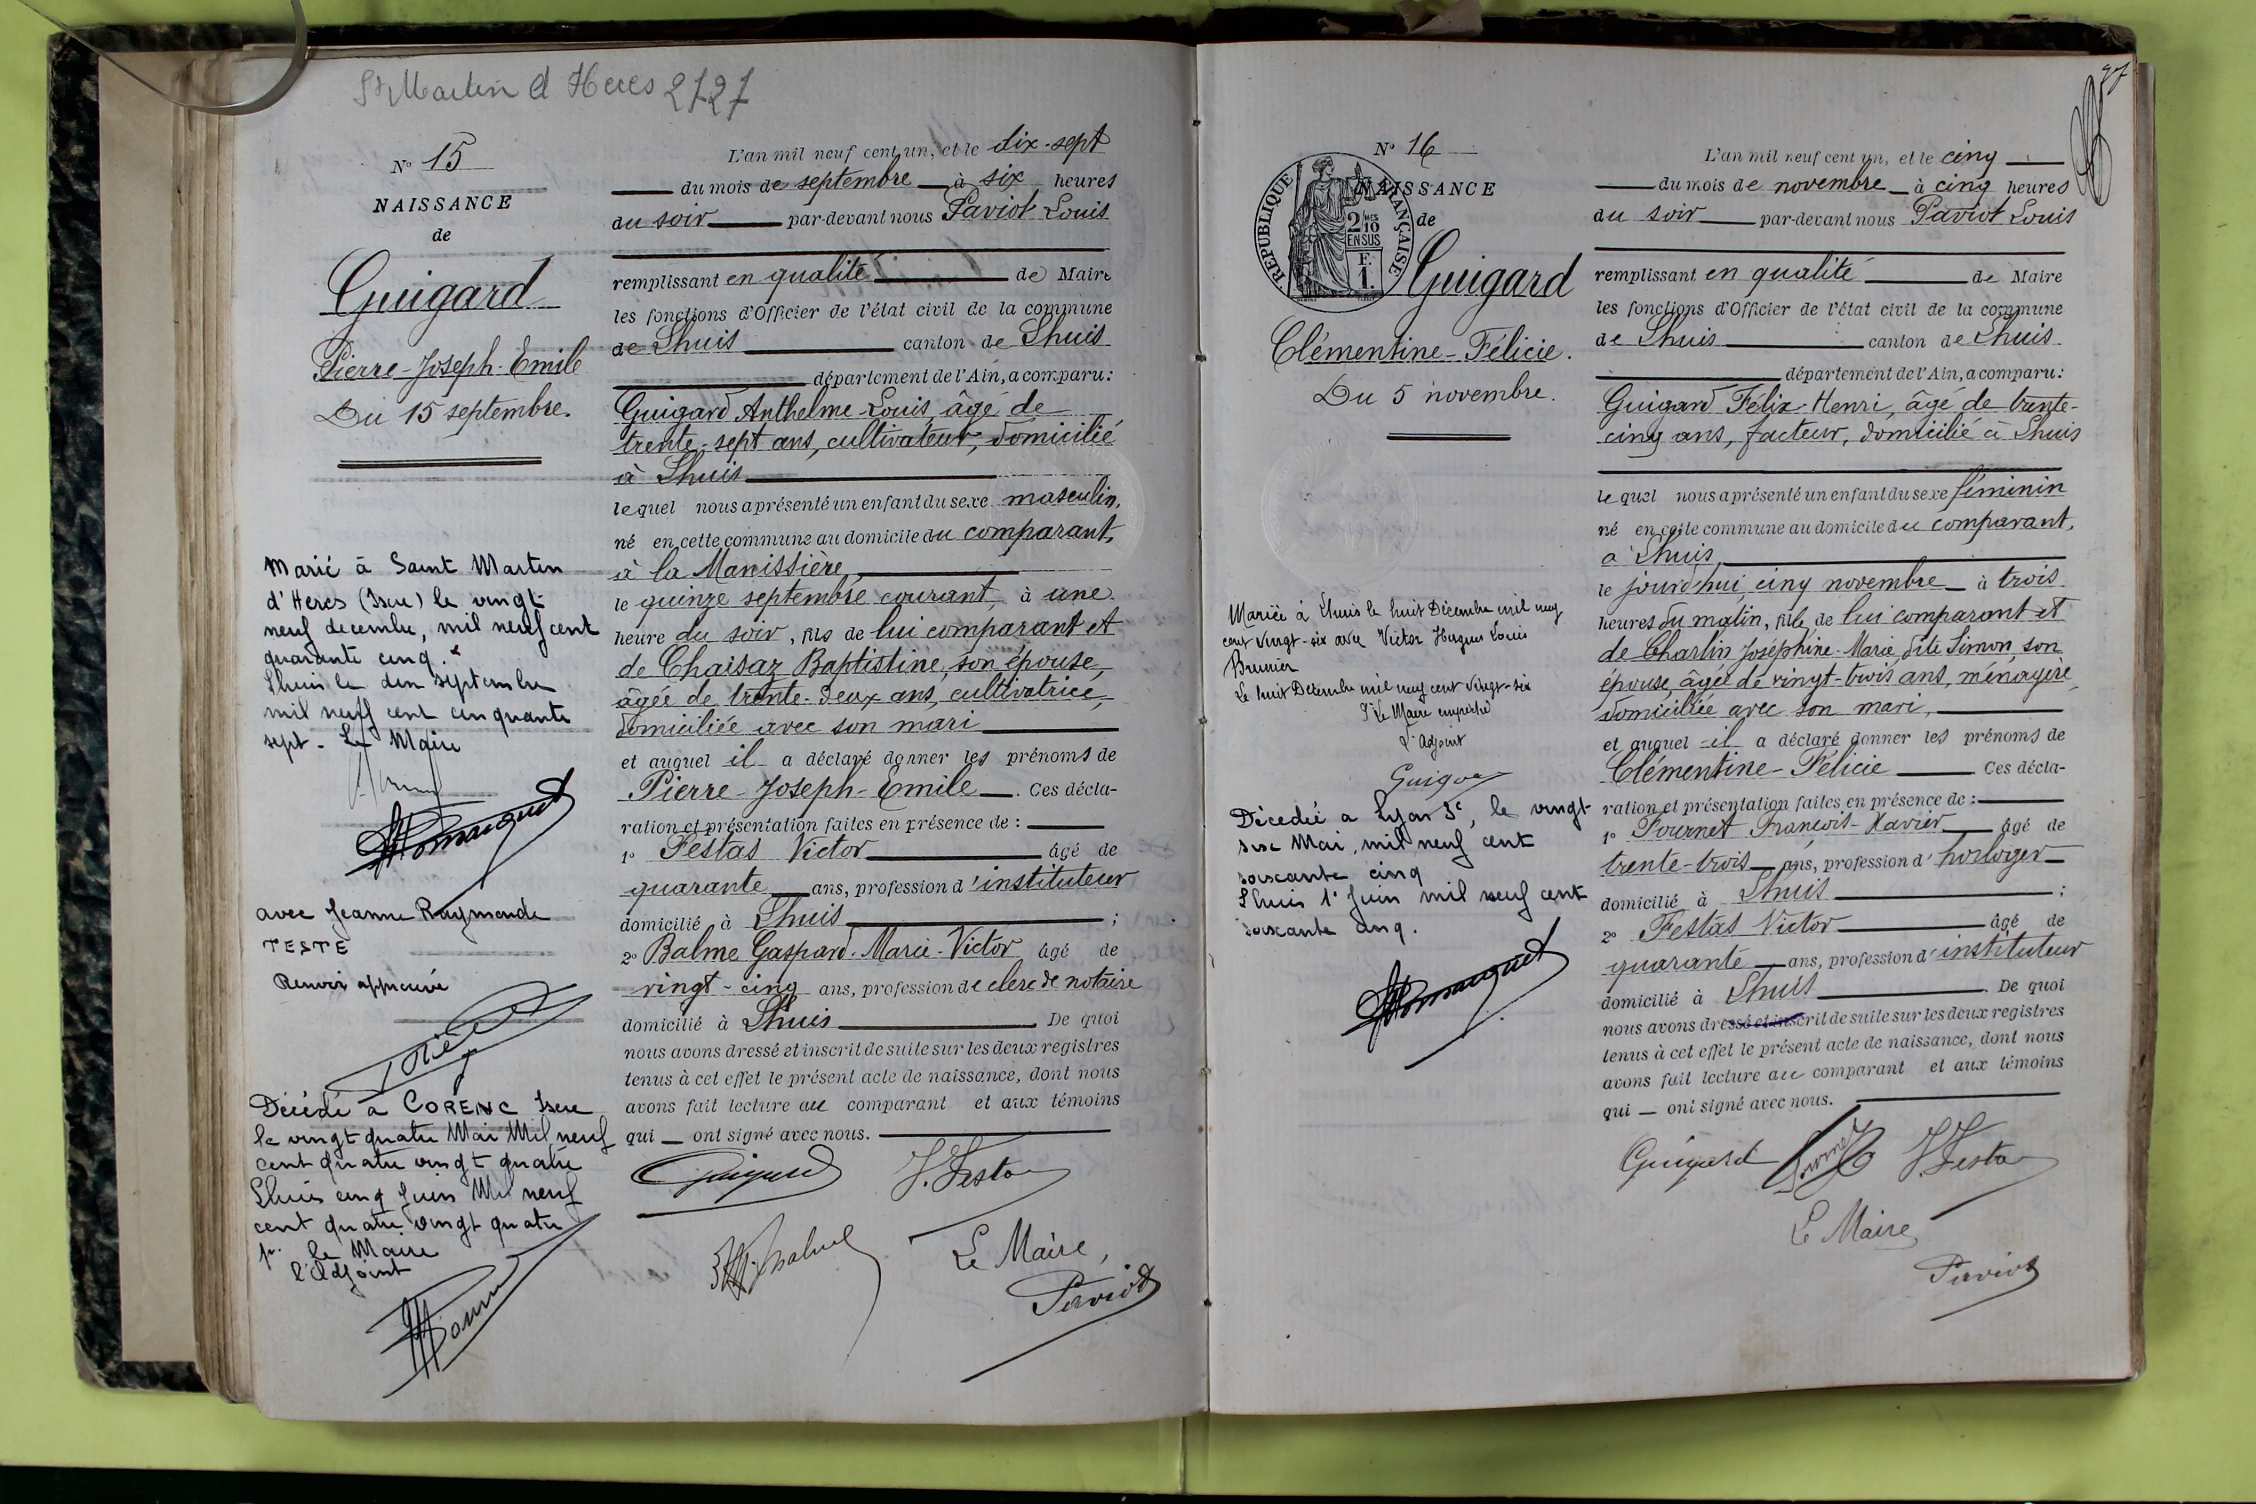 St Martin d Heres 2727
N° 15
NAISSANCE
de
Guigard
Pierre-Joseph-Emile
Du 15 septembre.
Marié à Saint Martin
d'Heres (Isere) le vingt
neuf decembre, mil neuf cent
quarante cinq.
Lhuis le dix septembre
mil neuf cent cinquante
sept - Le Maire
avec Jeanne Raymonde
TESTE
Renvoi approuvé
Décédé à CORENC Isere
le vingt quatre Mai Mil neuf
cent quatre vingt quatre
Lhuis cinq Juin Mil neuf
cent quatre vingt quatre
pr. le Maire
l'adjoint
L'an mil neuf cent un, et le dix-sept
du mois de septembre à six heures
du soir par-devant nous Paviot Louis
remplissant en qualité de Maire
les fonctions d'Officier de l'état civil de la commune
de Lhuis canton de Lhuis
département de l'Ain, a comparu:
Guigard Anthelme-Louis, âgé de
trente-sept ans, cultivateur, domicilié
à Lhuis
lequel nous a présenté un enfant du sexe masculin,
né en cette commune au domicile du comparant,
à la Manissière,
le quinze septembre courant, à une
heure du soir, fils de lui comparant et
de Chaisaz Baptistine, son épouse,
âgée de trente-deux ans, cultivatrice,
domiciliée avec son mari
et auquel il a déclaré donner les prénoms de
Pierre-Joseph-Emile. Ces décla-
ration et présentation faites en présence de :
1° Festas Victor âgé de
quarante ans, profession d'instituteur
domicilié à Lhuis ;
2° Balme Gaspard-Marie-Victor âgé de
vingt-cinq ans, profession de clerc de notaire
domicilié à Lhuis. De quoi
nous avons dressé et inscrit de suite sur les deux registres
tenus à cet effet le présent acte de naissance, dont nous
avons fait lecture au comparant et aux témoins
qui ont signé avec nous.
Guigard V. Festas
Le Maire,
Paviot
97
N° 16
NAISSANCE
de
RÉPUBLIQUE FRANÇAISE
2/10 EN SUS
F. 1.
Guigard
Clémentine-Félicie.
Du 5 novembre.
Mariée à Lhuis le huit Décembre mil neuf
cent vingt-six avec Victor Hugues Louis
Brunier
Le huit Décembre mil neuf cent vingt-six
Pr Le Maire empêché
L'Adjoint
Décédée à Lyon 3e, le vingt
six Mai, mil neuf cent
soixante cinq
Lhuis 1er Juin mil neuf cent
soixante cinq.
L'an mil neuf cent un, et le cinq
du mois de novembre à cinq heures
du soir par-devant nous Paviot Louis
remplissant en qualité de Maire
les fonctions d'Officier de l'état civil de la commune
de Lhuis canton de Lhuis
département de l'Ain, a comparu:
Guigard Félix-Henri, âgé de trente-
cinq ans, facteur, domicilié à Lhuis
lequel nous a présenté un enfant du sexe féminin
né en cette commune au domicile du comparant,
à Lhuis,
le jourd'hui, cinq novembre à trois
heures du matin, fille de lui comparant et
de Charlin Joséphine-Marie, dite Simon, son
épouse, âgée de vingt-trois ans, ménagère,
domiciliée avec son mari,
et auquel il a déclaré donner les prénoms de
Clémentine-Félicie Ces décla-
ration et présentation faites en présence de :
1° Fournet François-Xavier âgé de
trente-trois ans, profession d'horloger
domicilié à Lhuis ;
2° Festas Victor âgé de
quarante ans, profession d'instituteur
domicilié à Lhuis. De quoi
nous avons dressé et inscrit de suite sur les deux registres
tenus à cet effet le présent acte de naissance, dont nous
avons fait lecture au comparant et aux témoins
qui ont signé avec nous.
Guigard Fournet V. Festas
Le Maire,
Paviot